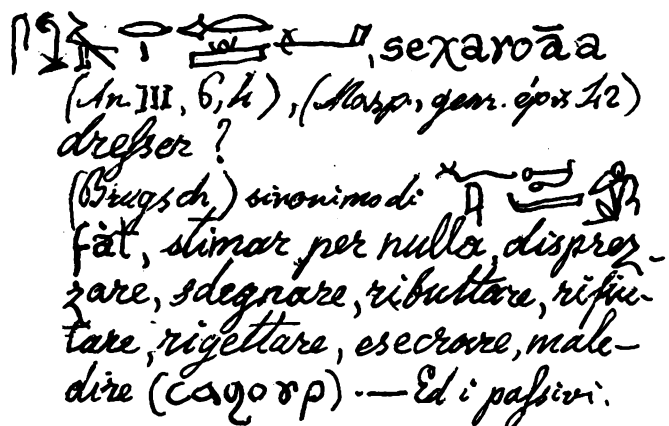 , seχaroāa
(An. III, 6, 4), (Masp., genr. épis 42)
dreſser ?
(Brugsch) sinonimo di
fāt, stimar per nulla, disprez-
zare, sdegnare, ributtare, rifiu-
tare, rigettare, esecrare, male-
dire (ⲥⲁϩⲟⲩⲣ). — Ed i paſsivi.